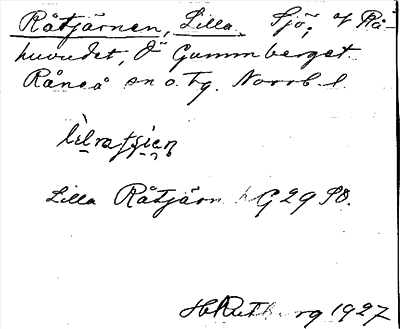 Råtjärnen, Lilla. Sjö, V Rå-
huvudet, Ö Gummberget
Råneå sn o. tg. Norrb. l.
lilratjien
Lilla Råtjärn G 29 SO.
H Rutberg 1927